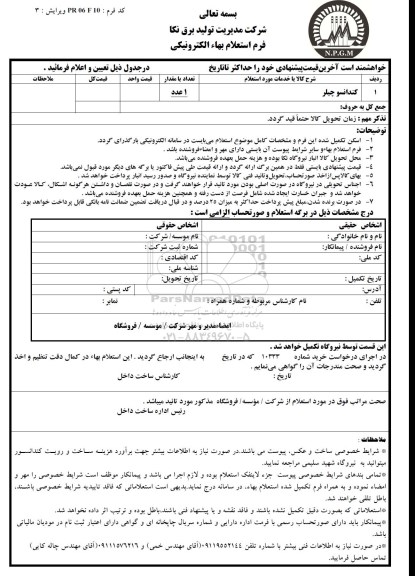 کد فرم : PR 06 F 10 ویرایش : ۳
بسمه تعالی
شرکت مدیریت تولید برق نکا
فرم استعلام بهاء الکترونیکی
N.P.G.M
خواهشمند است آخرین قیمت پیشنهادی خود را حداکثر تا تاریخ درجدول ذیل تعیین و اعلام فرمائید .
ردیف شرح کالا یا خدمات مورد استعلام تعداد یا مقدار قیمت واحد قیمت کل ملاحظات
۱ کندانسو چیلر ۱ عدد
جمع کل به حروف:
تذکر مهم : زمان تحویل کالا حتماً قید گردد.
توضیحات:
۱- اسکن تکمیل شده این فرم و مشخصات کامل موضوع استعلام می‌بایست در سامانه الکترونیکی بارگذرای گردد.
۲- فرم استعلام بهاء و سایر شرایط پیوست آن بایستی دارای مهر و امضاء فروشنده باشد .
۳- محل تحویل کالا انبار نیروگاه نکا بوده و هزینه حمل بعهده فروشنده می‌باشد.
۴- قیمت پیشنهادی بایستی فقط در همین برگ ارائه گردد و ارائه قیمت طی پیش فاکتور یا برگه های دیگر مورد قبول نمی‌باشد.
۵- بهای کالا پس از اخذ صورتحساب، تحویل و تائید فنی کالا توسط نماینده نیروگاه و صدور رسید انبار پرداخت خواهد شد .
۶- اجناس تحویلی در نیروگاه در صورت اصلی بودن مورد تائید قرار خواهند گرفت و در صورت نقصان و داشتن هرگونه اشکال، کالا عودت
خواهد شد و جبران خسارت ایجاد شده شامل فرصت از دست رفته و همچنین هزینه حمل بعهده فروشنده می‌باشد.
۷- در صورت برنده شدن، مبلغ پیش پرداخت حداکثر به میزان ۲۵ درصد و در قبال دریافت تضمین ضمانت نامه بانکی قابل پرداخت خواهد بود.
درج مشخصات ذیل در برگه استعلام و صورتحساب الزامی است :
اشخاص حقیقی اشخاص حقوقی
نام و نام خانوادگی : نام موسسه/ شرکت :
نام فروشنده / پیمانکار: شماره ثبت شرکت :
کد ملی: کد اقتصادی :
شناسه ملی:
تاریخ تکمیل : تاریخ تحویل:
آدرس: کد پستی :
تلفن : نام کارشناس مربوطه و شماره همراه : نمابر :
امضاء مدیر و مهر شرکت / موسسه / فروشگاه
ParsNamadData
۰۲۱-۸۸۳۴۹۶۷۰-۵
این قسمت توسط نیروگاه تکمیل خواهد شد .
در اجرای درخواست خرید شماره ۱۰۳۳۳ که در تاریخ به اینجانب ارجاع گردید . این استعلام بهاء در کمال دقت تنظیم و اخذ
گردید و صحت مندرجات آن را گواهی می‌نمایم .
تاریخ : کارشناس ساخت داخل
صحت مراتب فوق در مورد استعلام از شرکت / مؤسسه/ فروشگاه مذکور مورد تائید میباشد .
رئیس اداره ساخت داخل
ملاحظات :
* شرایط خصوصی ساخت و عکس، پیوست می باشند.در صورت نیاز به اطلاعات بیشتر جهت برآورد هزینه ساخت و رویت کندانسور
میتوانید به نیروگاه شهید سلیمی مراجعه نمایید.
*تمامی بندهای شرایط خصوصی پیوست جزء لاینفک استعلام بوده و لازم اجرا می باشد و پیمانکار موظف است شرایط خصوصی را مهر و
امضاء نموده و به همراه فرم تکمیل شده استعلام بهاء، در سامانه درج نماید.بدیهی است استعلاماتی که فاقد تاییدیه شرایط خصوصی باشند،
باطل تلقی خواهند شد.
*استعلاماتی که بصورت دقیق تکمیل نشده باشند و فاقد نقشه و یا پیشنهاد فنی باشند،باطل بوده و ترتیب اثر داده نخواهد شد.
*پیمانکار باید دارای صورتحساب رسمی با فرمت اداره دارایی و شماره سریال چاپخانه ای و گواهی دارای اعتبار ثبت نام در مودیان مالیاتی
باشد.
*در صورت نیاز به اطلاعات فنی بیشتر با شماره تلفن ۰۹۱۱۹۵۵۲۱۴۴(آقای مهندس خمی) و ۰۹۱۱۱۵۷۶۲۱۶(آقای مهندس چاله کایی)
تماس حاصل فرمایید.